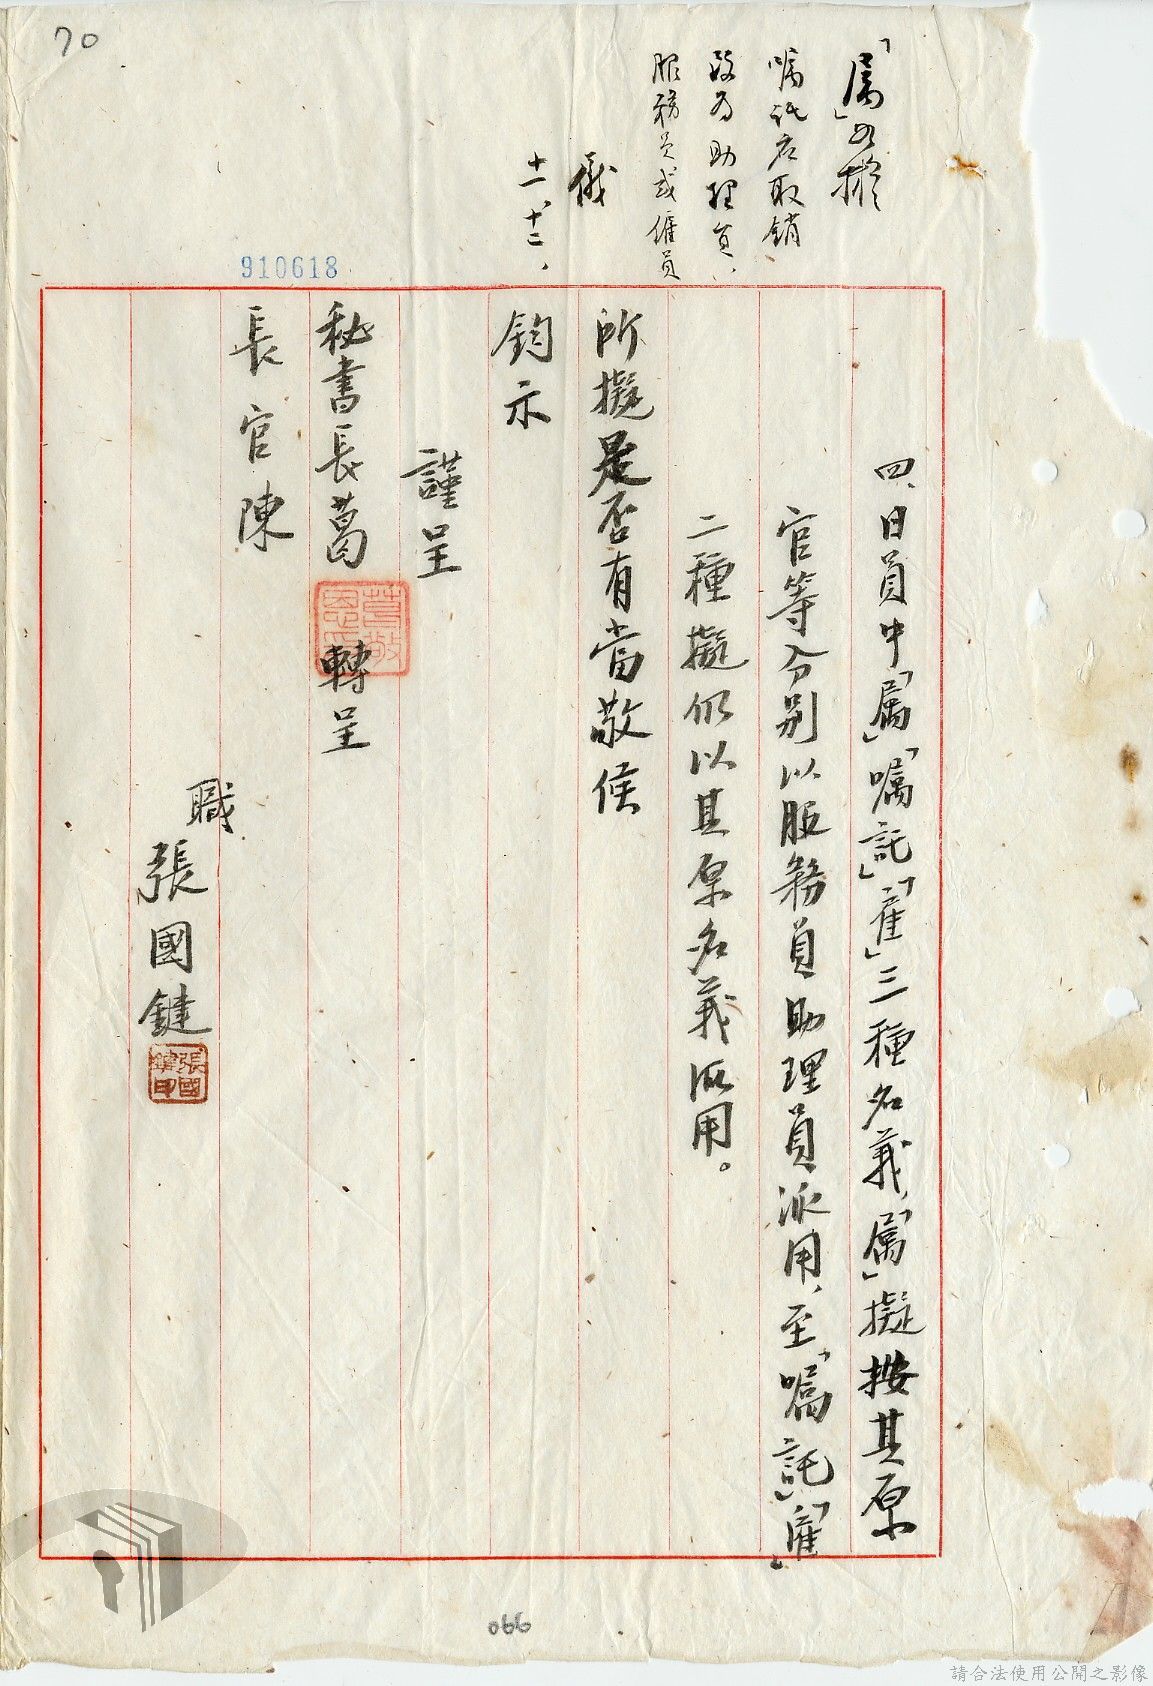 70
「属」如擬
嘱託应取銷
改为助理員、
服務員或僱員
儀
十一、十二、
910618
四、日員中「属」「嘱託」「雇」三種名義，「属」擬按其原
官等分別以服務員助理員派用，至「嘱託」「雇」
二種擬仍以其原名義派用。
所擬是否有當敬候
鈞示
謹呈
秘書長葛　轉呈
長官陳
職
張國鍵
張國鍵印
066
請合法使用公開之影像